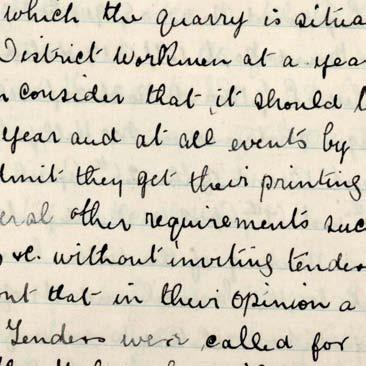 which the quarry is situa
District Workmen at a yea
consider that it should
year and at all events by
dmit they get their printing
eral other requirements suc
&c. without inviting tenders
nt that in their opinion a
Tenders were called for